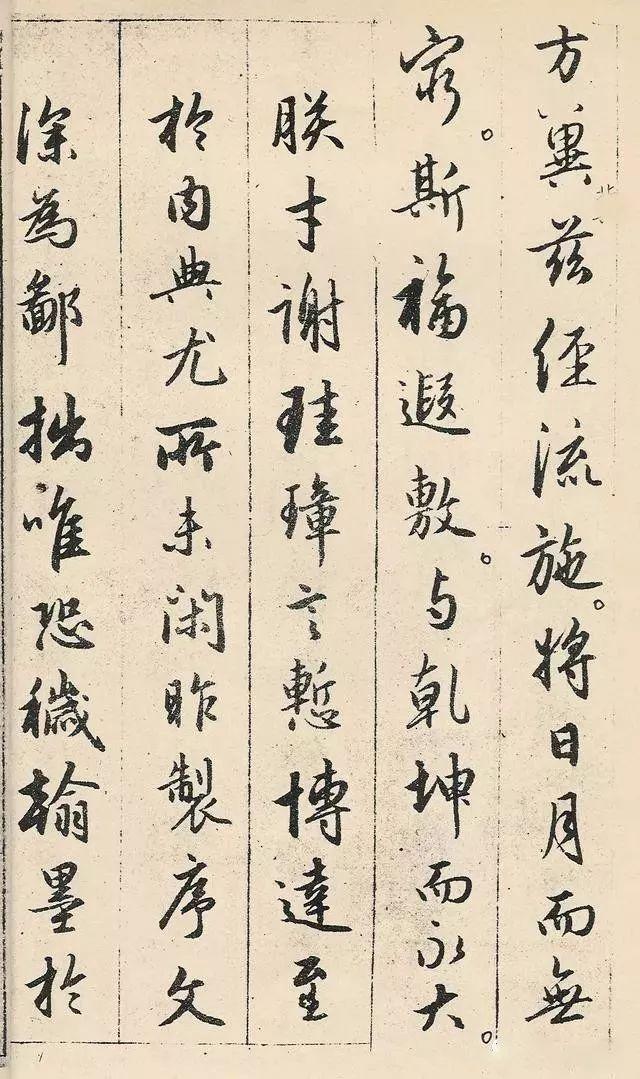 方冀茲經流施。將日月而無
窮。斯福遐敷。与乾坤而永大。
朕才謝珪璋言慙博達至
於内典尤所未閑昨製序文
深為鄙拙唯恐穢翰墨於